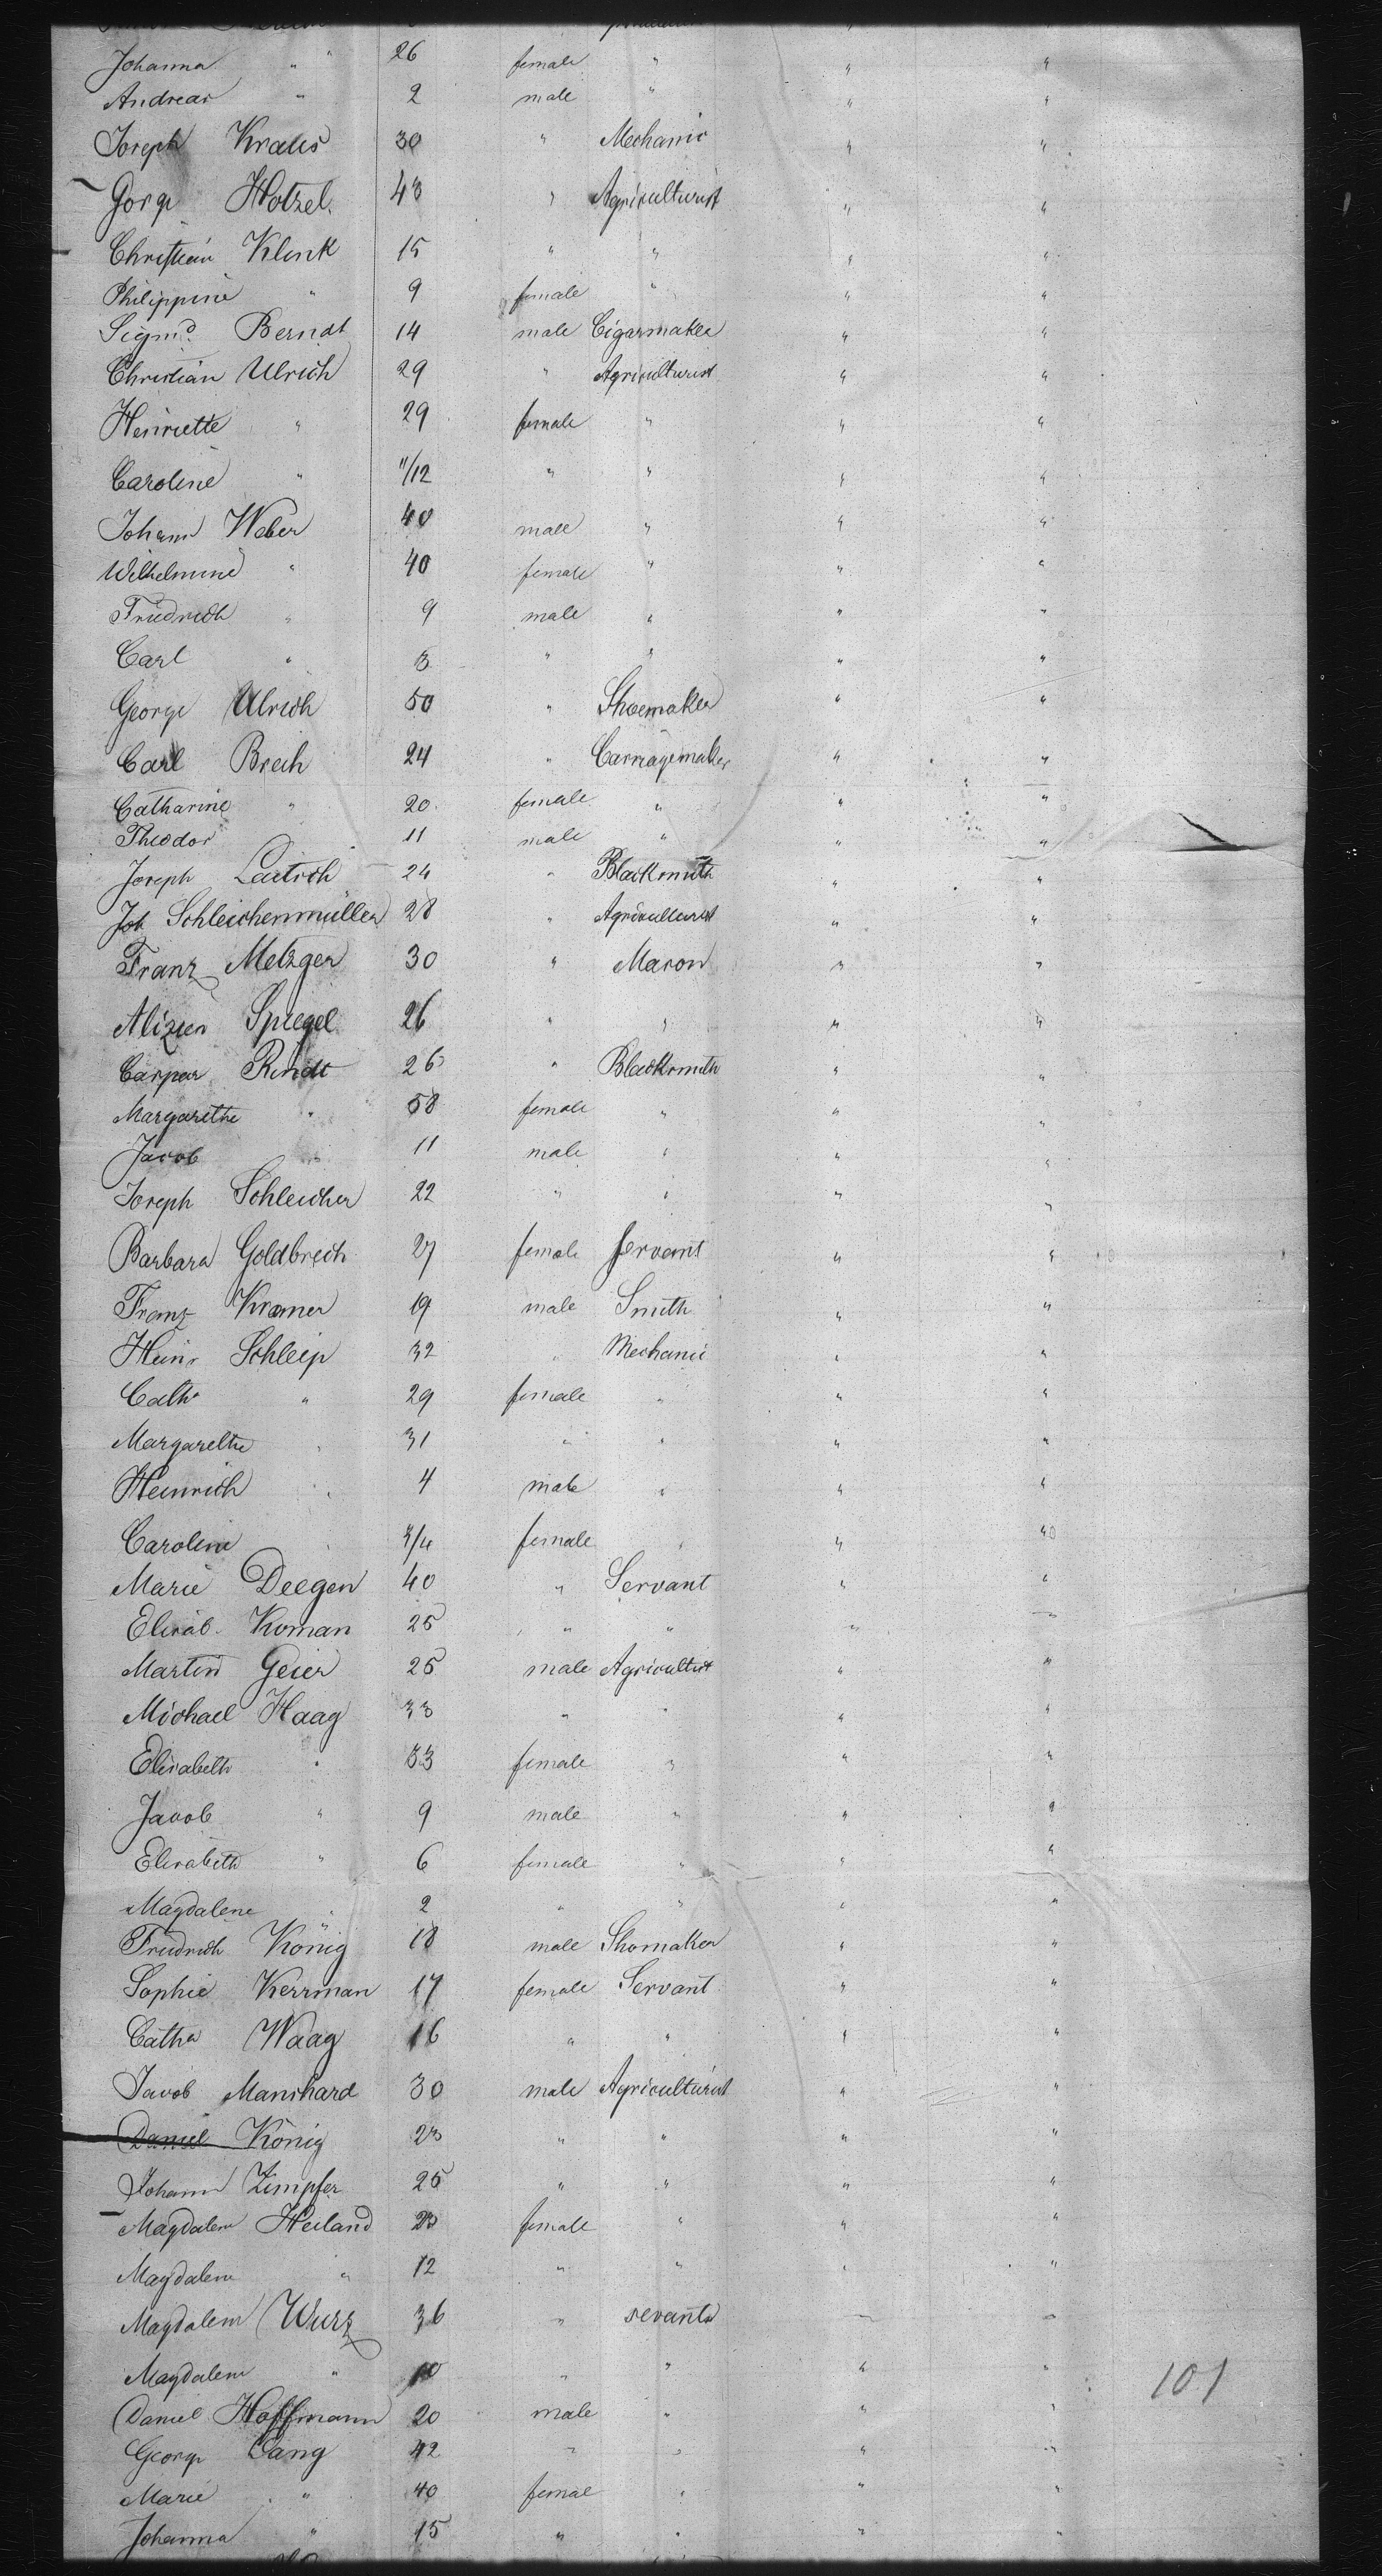 Johanna " 26 female " " "
Andreas " 2 male " " "
Joseph Kraus 30 " Mechanic " "
Gorge Hotzel 43 " Agriculturist " "
Christian Klink 15 " " " "
Philippine " 9 female " " "
Sigmd. Berndt 14 male Cigarmaker " "
Christian Ulrich 29 " Agriculturist " "
Henriette " 29 female " " "
Caroline " 11/12 " " " "
Johann Weber 40 male " " "
Wilhelmine " 40 female " " "
Friedrich " 9 male " " "
Carl " " " " "
George Ulrich 50 " Shoemaker " "
Carl Breih 24 " Carriagemaker " "
Catharine " 20 female " " "
Theodor 11 male " " "
Joseph Laitsch 24 " Blacksmith " "
Joh Schleichenmüller 28 " Agriculturist " "
Franz Metzger 30 " Mason " "
Spiegel 26 " " " "
Caspar Rindt 26 " Blacksmith " "
Margarethe " 58 female " " "
Jacob " 11 male " " "
Joseph Schleicher 22 " " " "
Barbara Goldbrech 27 female servant " "
Franz Kramer 19 male Smith " "
Heinr Schleip 32 " Mechanic " "
Cath " 29 female " " "
Margarethe " 31 " " " "
Heinrich " 4 male " " "
Caroline " 3/4 female " " "
Marie Deegen 40 " Servant " "
Elisab. Koman 25 " " " "
Martin Geier 25 male Agricultist " "
Michael Haag 33 " " " "
Elisabeth " 33 female " " "
Jacob " 9 male " " "
Elisabeth " 6 female " " "
Magdalene " 2 " " " "
Friedrich König 18 male Shomaker " "
Sophie Kerrman 17 female Servant " "
Catha Waag 16 " " " "
Jacob Manshard 30 male Agriculturist " "
Daniel König 23 " " " "
Johann Zimpfer 25 " " " "
Magdalene Heiland female " " "
Magdalene " 12 " " " "
Magdalene Wurz 36 " sevants " "
Magdalene " 10 " " " " 101
Daniel Hoffmann 20 male " " "
George Lang 42 " " " "
Marie " 40 femal " " "
Johanna " 15 " " " "